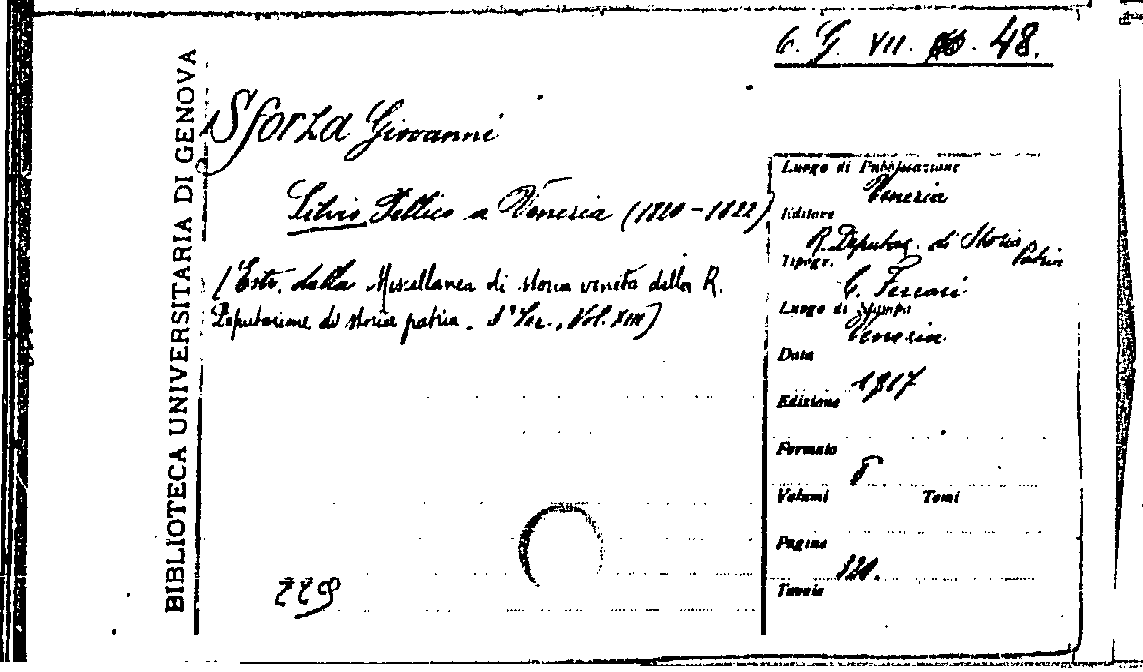 6. G. VII. 48.
BIBLIOTECA UNIVERSITARIA DI GENOVA
Sforza Giovanni
Silvio Pellico a Venezia (1820-1822)
(Estr. dalla Miscellanea di storia veneta della R.
Deputazione di storia patria. Vol. XIII)
229
Luogo di Pubblicazione
Venezia
Editore
R. Deputaz. di Storia
Patria
Tipogr.
C. Ferrari
Luogo di Stampa
Venezia
Data
1917
Edizione
Formato
8
Volumi Tomi
Pagine
Tavole